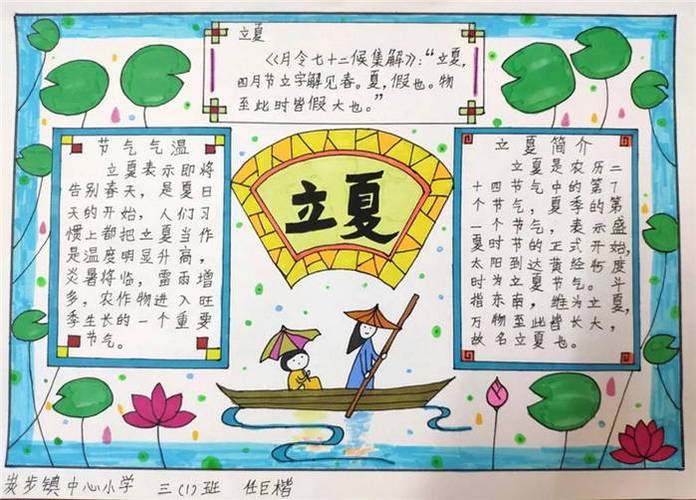 立夏
《月令七十二候集解》:“立夏,
四月节立字解见春。夏,假也。物
至此时皆假大也。”
节气气温
立夏表示即将
告别春天,是夏日
天的开始,人们习
惯上都把立夏当作
是温度明显升高,
炎暑将临,雷雨增
多,农作物进入旺
季生长的一个重要
节气。
立夏
立夏简介
立夏是农历二
十四节气中的第7
个节气,夏季的第
一个节气,表示盛
夏时节的正式开始,
太阳到达黄经45度
时为立夏节气。斗
指东南,维为立夏,
万物至此皆长大,
故名立夏也。
炭步镇中心小学 三(1)班 任巨楷